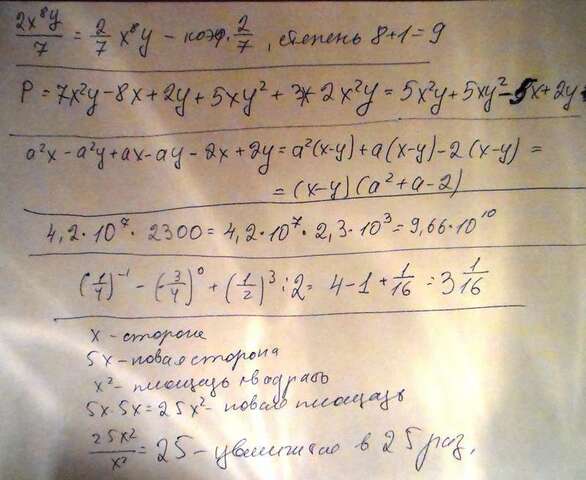 2x⁸y/7 = 2/7 x⁸y - коэф. 2/7, степень 8+1=9
P = 7x²y-8x+2y+5xy²+3x-2x²y = 5x²y+5xy²-5x+2y
a²x-a²y+ax-ay-2x+2y = a²(x-y)+a(x-y)-2(x-y) =
= (x-y)(a²+a-2)
4,2·10⁷·2300 = 4,2·10⁷·2,3·10³ = 9,66·10¹⁰
(1/4)⁻¹ - (-3/4)⁰ + (1/2)³:2 = 4-1+1/16 = 3 1/16
x - сторона
5x - новая сторона
x² - площадь квадрата
5x·5x=25x² - новая площадь
25x²/x² = 25 - увеличится в 25 раз.